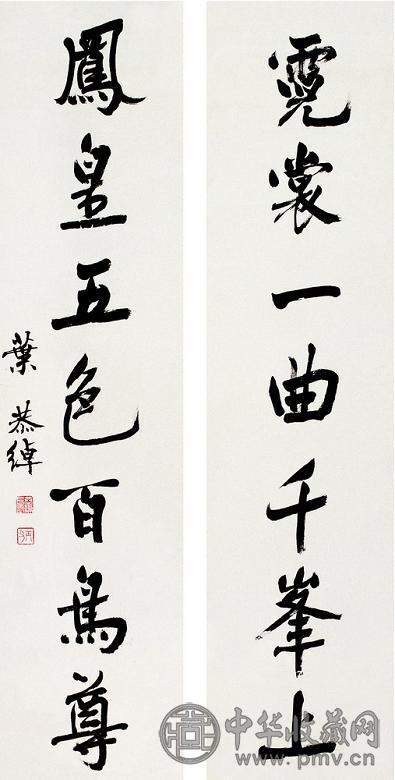 霓裳一曲千峯上
鳳皇五色百鳥尊
葉恭綽
中华收藏网
www.pmv.cn